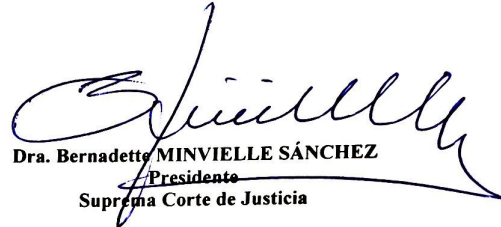 Dra. Bernadette MINVIELLE SÁNCHEZ
Presidente
Suprema Corte de Justicia